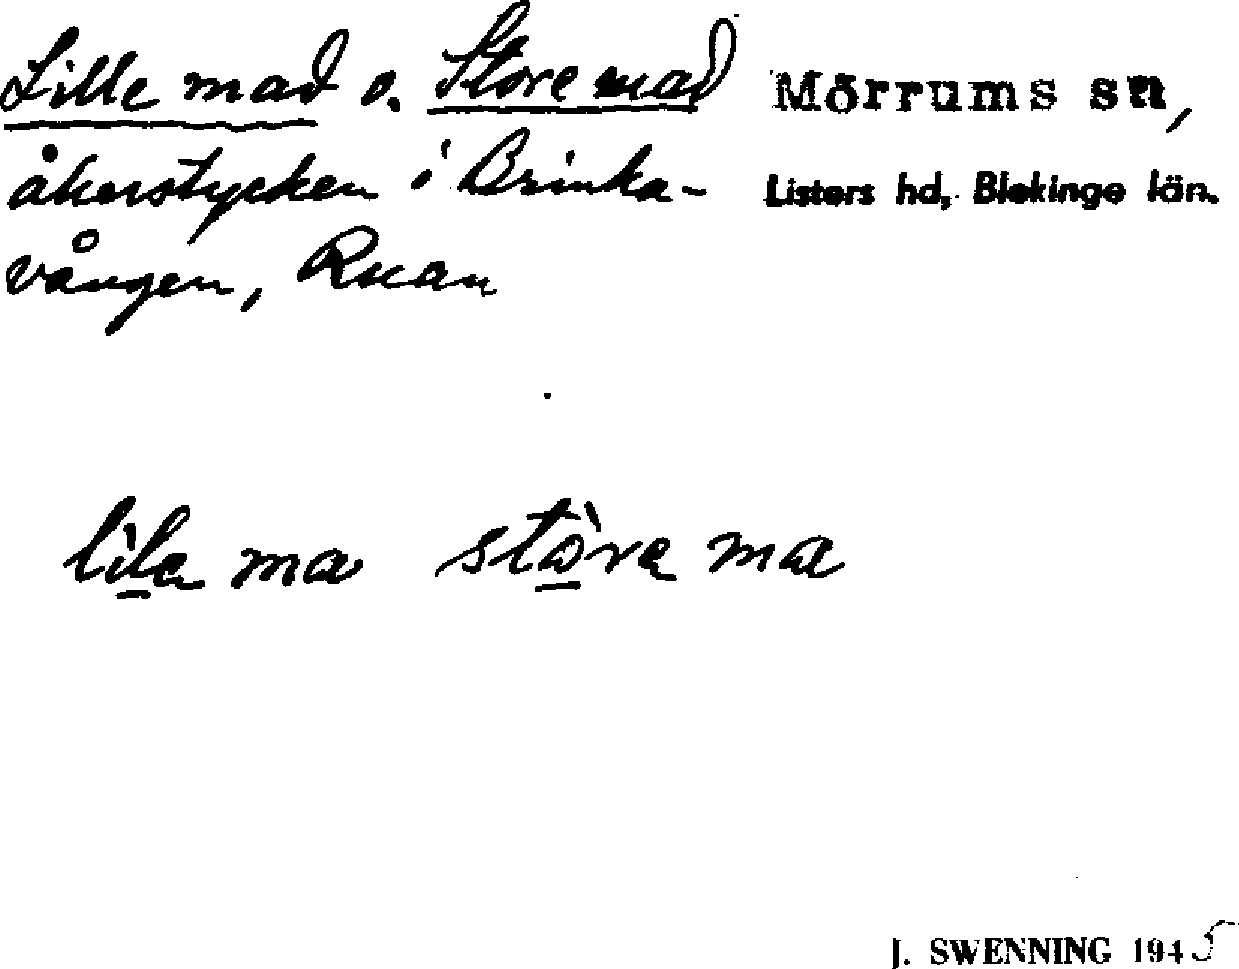 Lille mad o. Store mad
Mörrums sn,
åkerstycken i Brinka-
Listers hd, Blekinge län.
vången, Ruan
lìla ma stòra ma
J. SWENNING 1945